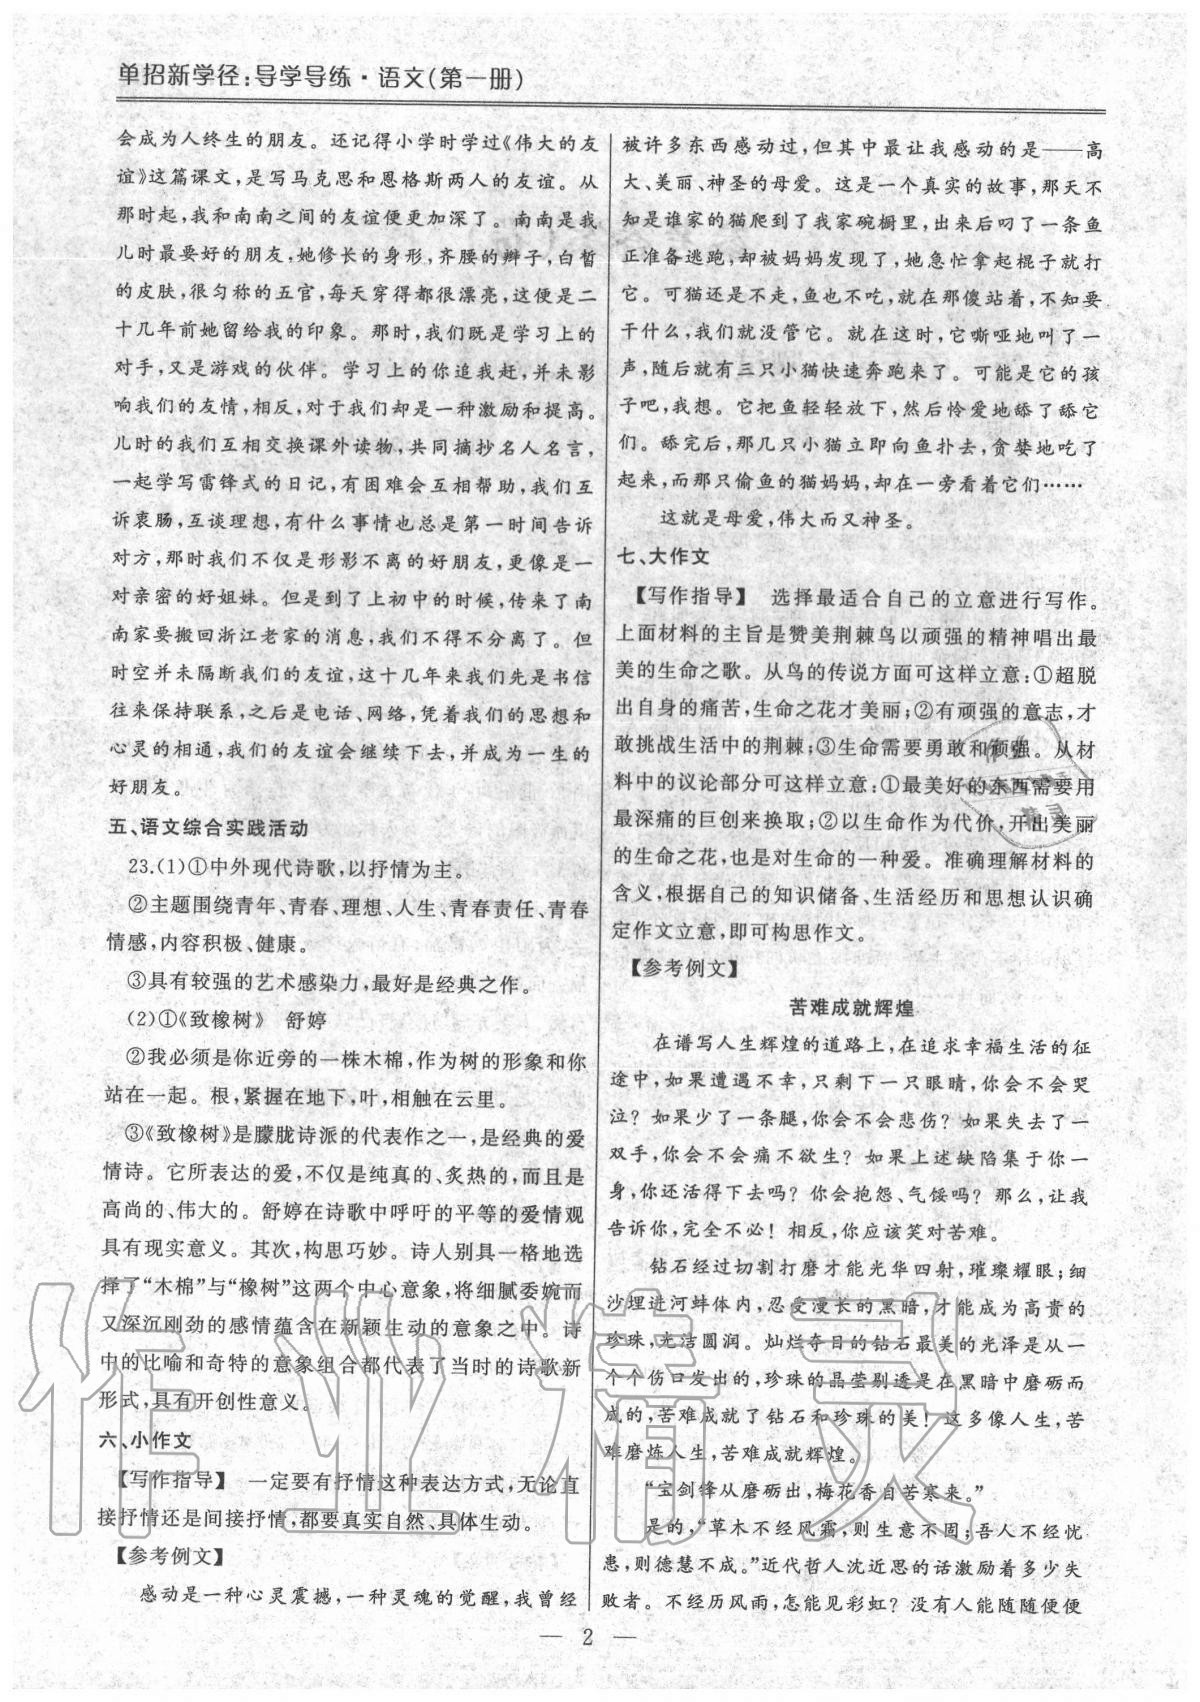 单招新学径:导学导练·语文(第一册)
会成为人终生的朋友。还记得小学时学过《伟大的友
谊》这篇课文,是写马克思和恩格斯两人的友谊。从
那时起,我和南南之间的友谊便更加深了。南南是我
儿时最要好的朋友,她修长的身形,齐腰的辫子,白皙
的皮肤,很匀称的五官,每天穿得都很漂亮,这便是二
十几年前她留给我的印象。那时,我们既是学习上的
对手,又是游戏的伙伴。学习上的你追我赶,并未影
响我们的友情,相反,对于我们却是一种激励和提高。
儿时的我们互相交换课外读物,共同摘抄名人名言,
一起学写雷锋式的日记,有困难会互相帮助,我们互
诉衷肠,互谈理想,有什么事情也总是第一时间告诉
对方,那时我们不仅是形影不离的好朋友,更像是一
对亲密的好姐妹。但是到了上初中的时候,传来了南
南家要搬回浙江老家的消息,我们不得不分离了。但
时空并未隔断我们的友谊,这十几年来我们先是书信
往来保持联系,之后是电话、网络,凭着我们的思想和
心灵的相通,我们的友谊会继续下去,并成为一生的
好朋友。
五、语文综合实践活动
23.(1)①中外现代诗歌,以抒情为主。
②主题围绕青年、青春、理想、人生、青春责任、青春
情感,内容积极、健康。
③具有较强的艺术感染力,最好是经典之作。
(2)①《致橡树》 舒婷
②我必须是你近旁的一株木棉,作为树的形象和你
站在一起。根,紧握在地下,叶,相触在云里。
③《致橡树》是朦胧诗派的代表作之一,是经典的爱
情诗。它所表达的爱,不仅是纯真的、炙热的,而且是
高尚的、伟大的。舒婷在诗歌中呼吁的平等的爱情观
具有现实意义。其次,构思巧妙。诗人别具一格地选
择了“木棉”与“橡树”这两个中心意象,将细腻委婉而
又深沉刚劲的感情蕴含在新颖生动的意象之中。诗
中的比喻和奇特的意象组合都代表了当时的诗歌新
形式,具有开创性意义。
六、小作文
【写作指导】 一定要有抒情这种表达方式,无论直
接抒情还是间接抒情,都要真实自然、具体生动。
【参考例文】
感动是一种心灵震撼,一种灵魂的觉醒,我曾经
被许多东西感动过,但其中最让我感动的是——高
大、美丽、神圣的母爱。这是一个真实的故事,那天不
知是谁家的猫爬到了我家碗橱里,出来后叼了一条鱼
正准备逃跑,却被妈妈发现了,她急忙拿起棍子就打
它。可猫还是不走,鱼也不吃,就在那傻站着,不知要
干什么,我们就没管它。就在这时,它嘶哑地叫了一
声,随后就有三只小猫快速奔跑过来。可能是它的孩
子吧,我想。它把鱼轻轻放下,然后怜爱地舔了舔它
们。舔完后,那几只小猫立即向鱼扑去,贪婪地吃了
起来,而那只偷鱼的猫妈妈,却在一旁看着它们……
这就是母爱,伟大而又神圣。
七、大作文
【写作指导】 选择最适合自己的立意进行写作。
上面材料的主旨是赞美荆棘鸟以顽强的精神唱出最
美的生命之歌。从鸟的传说方面可这样立意:①超脱
出自身的痛苦,生命之花才美丽;②有顽强的意志,才
敢挑战生活中的荆棘;③生命需要勇敢和顽强。从材
料中的议论部分可这样立意:①最美好的东西需要用
最深痛的巨创来换取;②以生命作为代价,开出美丽
的生命之花,也是对生命的一种爱。准确理解材料的
含义,根据自己的知识储备、生活经历和思想认识确
定作文立意,即可构思作文。
【参考例文】
苦难成就辉煌
在谱写人生辉煌的道路上,在追求幸福生活的征
途中,如果遭遇不幸,只剩下一只眼睛,你会不会哭
泣?如果少了一条腿,你会不会悲伤?如果失去了一
双手,你会不会痛不欲生?如果上述缺陷集于你一
身,你还活得下去吗?你会抱怨、气馁吗?那么,让我
告诉你,完全不必!相反,你应该笑对苦难。
钻石经过切割打磨才能光华四射,璀璨耀眼;细
沙埋进河蚌体内,忍受漫长的黑暗,才能成为高贵的
珍珠,光洁圆润。灿烂夺目的钻石最美的光泽是从一
个个伤口发出的,珍珠的晶莹剔透是在黑暗中磨砺而
成的,苦难成就了钻石和珍珠的美!这多像人生,苦
难磨炼人生,苦难成就辉煌。
“宝剑锋从磨砺出,梅花香自苦寒来。”
是的,“草木不经风霜,则生意不固;吾人不经忧
患,则德慧不成。”近代哲人沈近思的话激励着多少失
败者。不经历风雨,怎能见彩虹?没有人能随随便便
— 2 —
作业精灵
作业
精灵